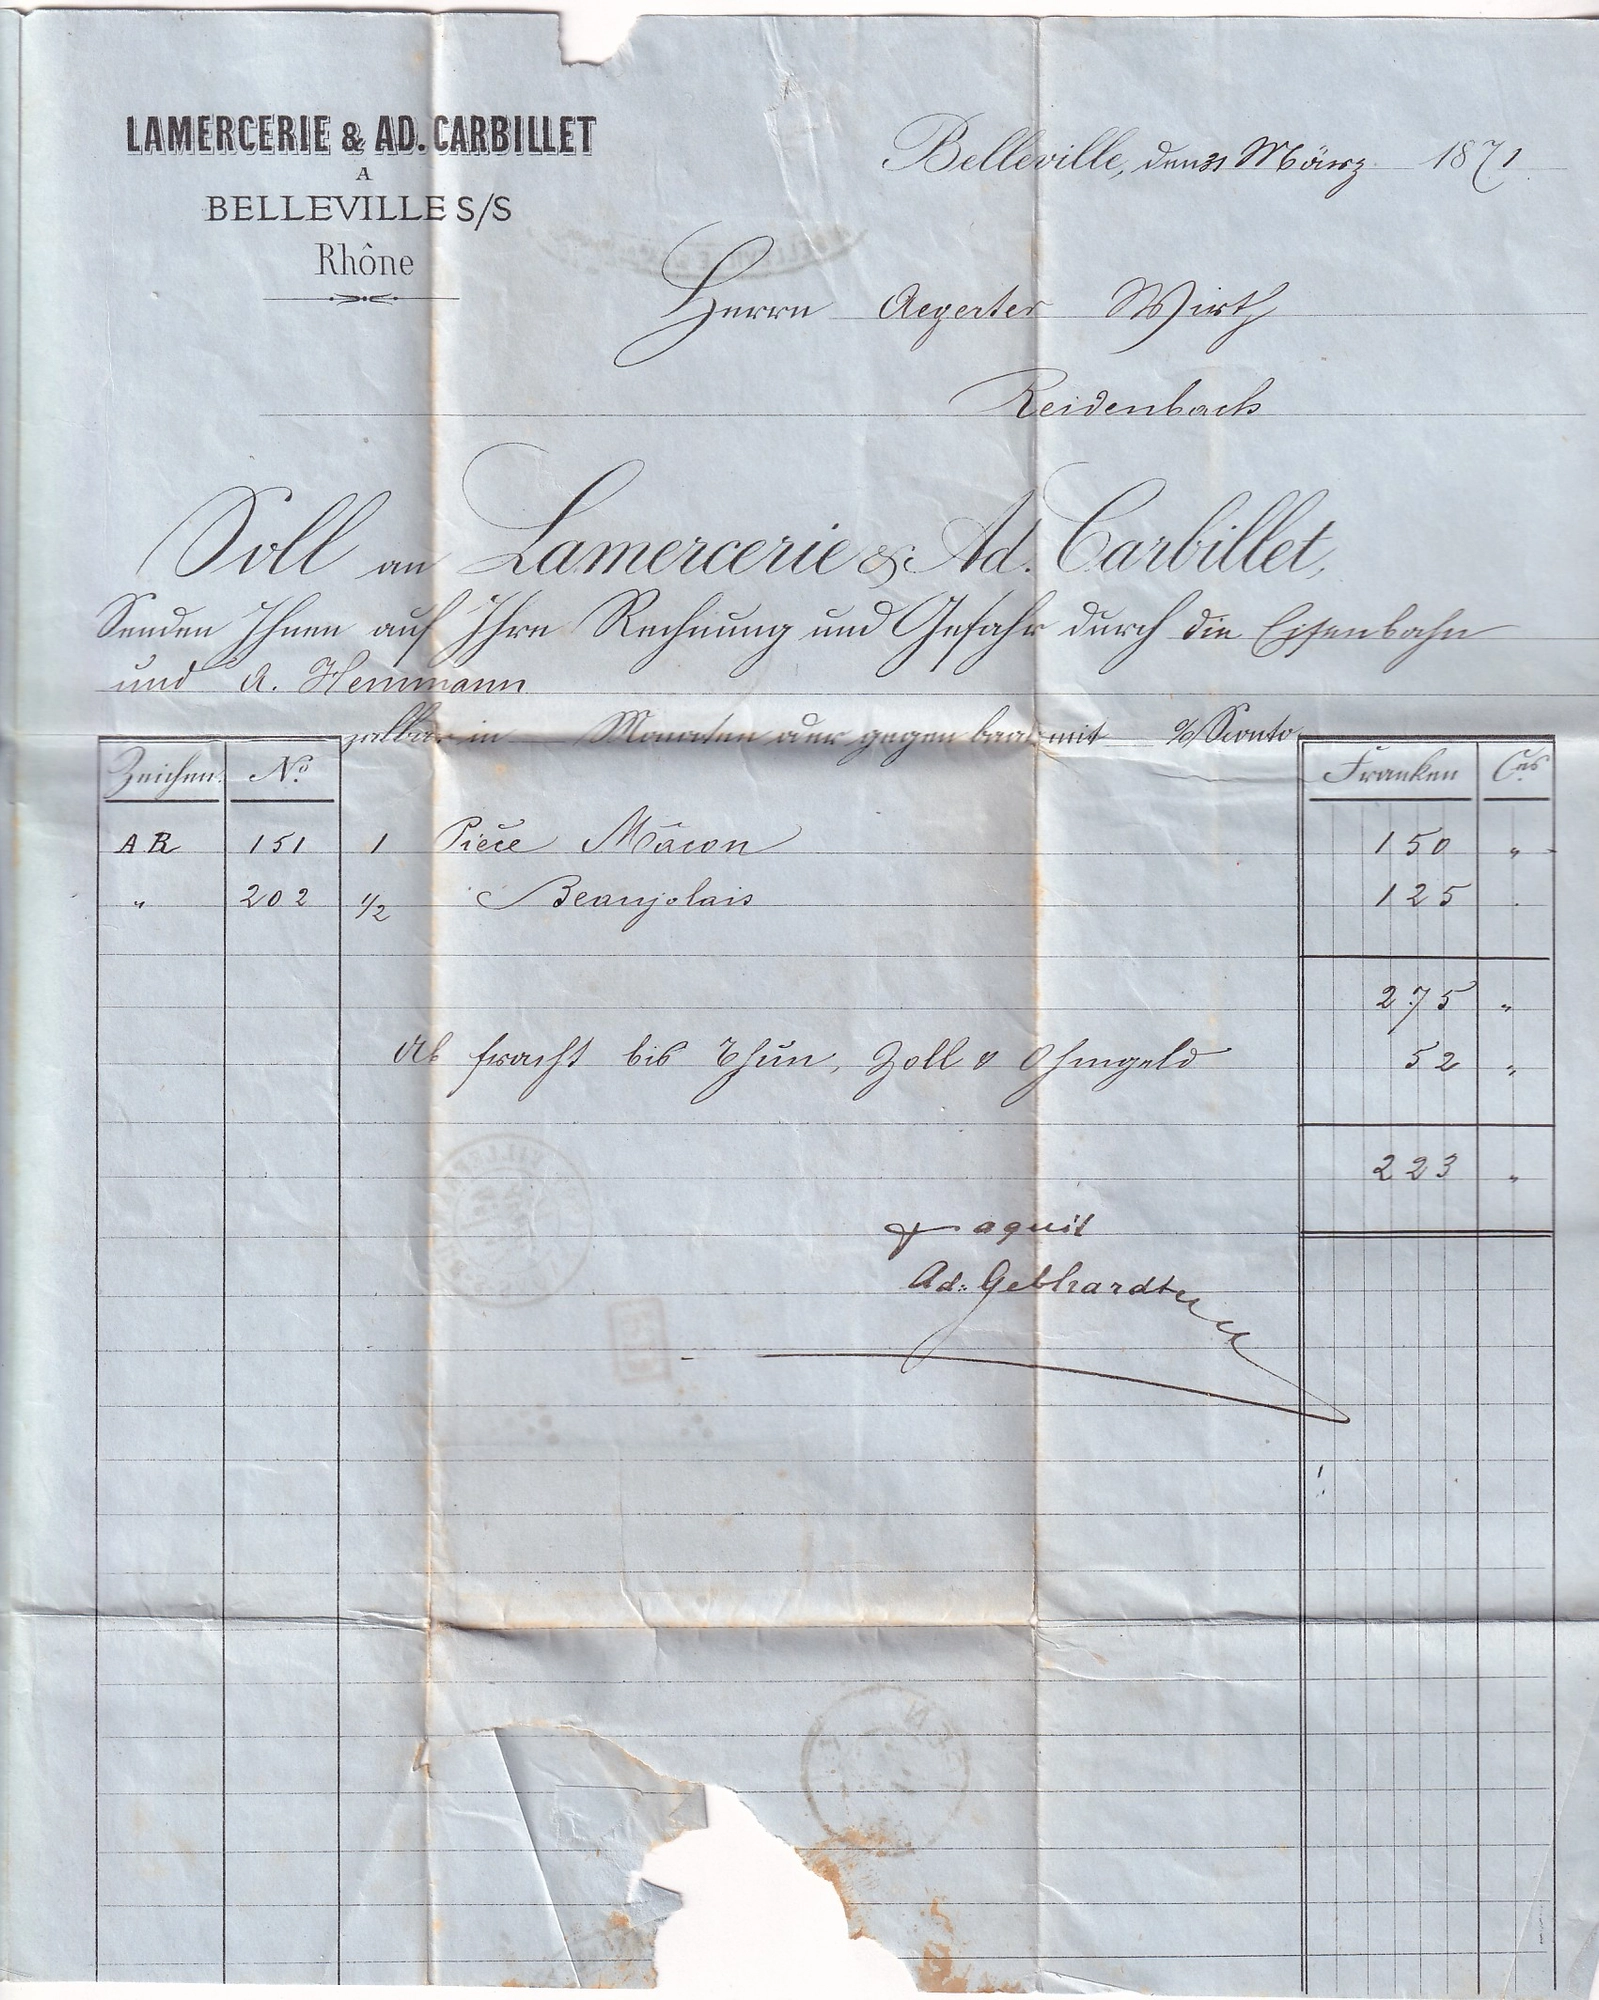 LAMERCERIE & AD. CARBILLET
A
BELLEVILLE S/S
Rhône
Belleville, den 31 März 1871
Herrn Aegerter Wirth
Reidenbach
Soll an Lamercerie & Ad. Carbillet,
Senden Ihnen auf Ihre Rechnung und Gefahr durch die Eisenbahn
und A. Hemmann
zalbar in Monaten oder gegen baar mit % Sconto
Zeichen No Franken Ces
AR 151 1 Pièce Mâcon 150 "
" 202 1/2 Beaujolais 125
275 "
Ab fracht bis Thun, Zoll & Ohmgeld 52 "
223 "
aquit
Ad. Gebhardt